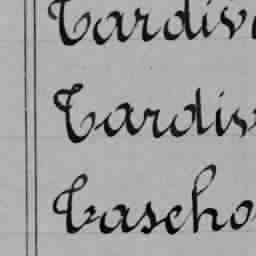 Tardiv
Tardiv
Tascho